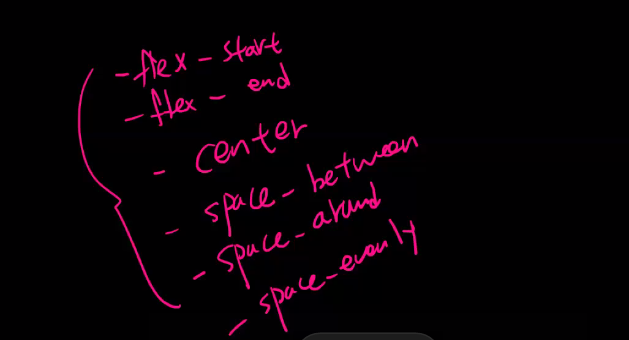 - flex - start
- flex - end
- center
- space - between
- space - around
- space - evenly